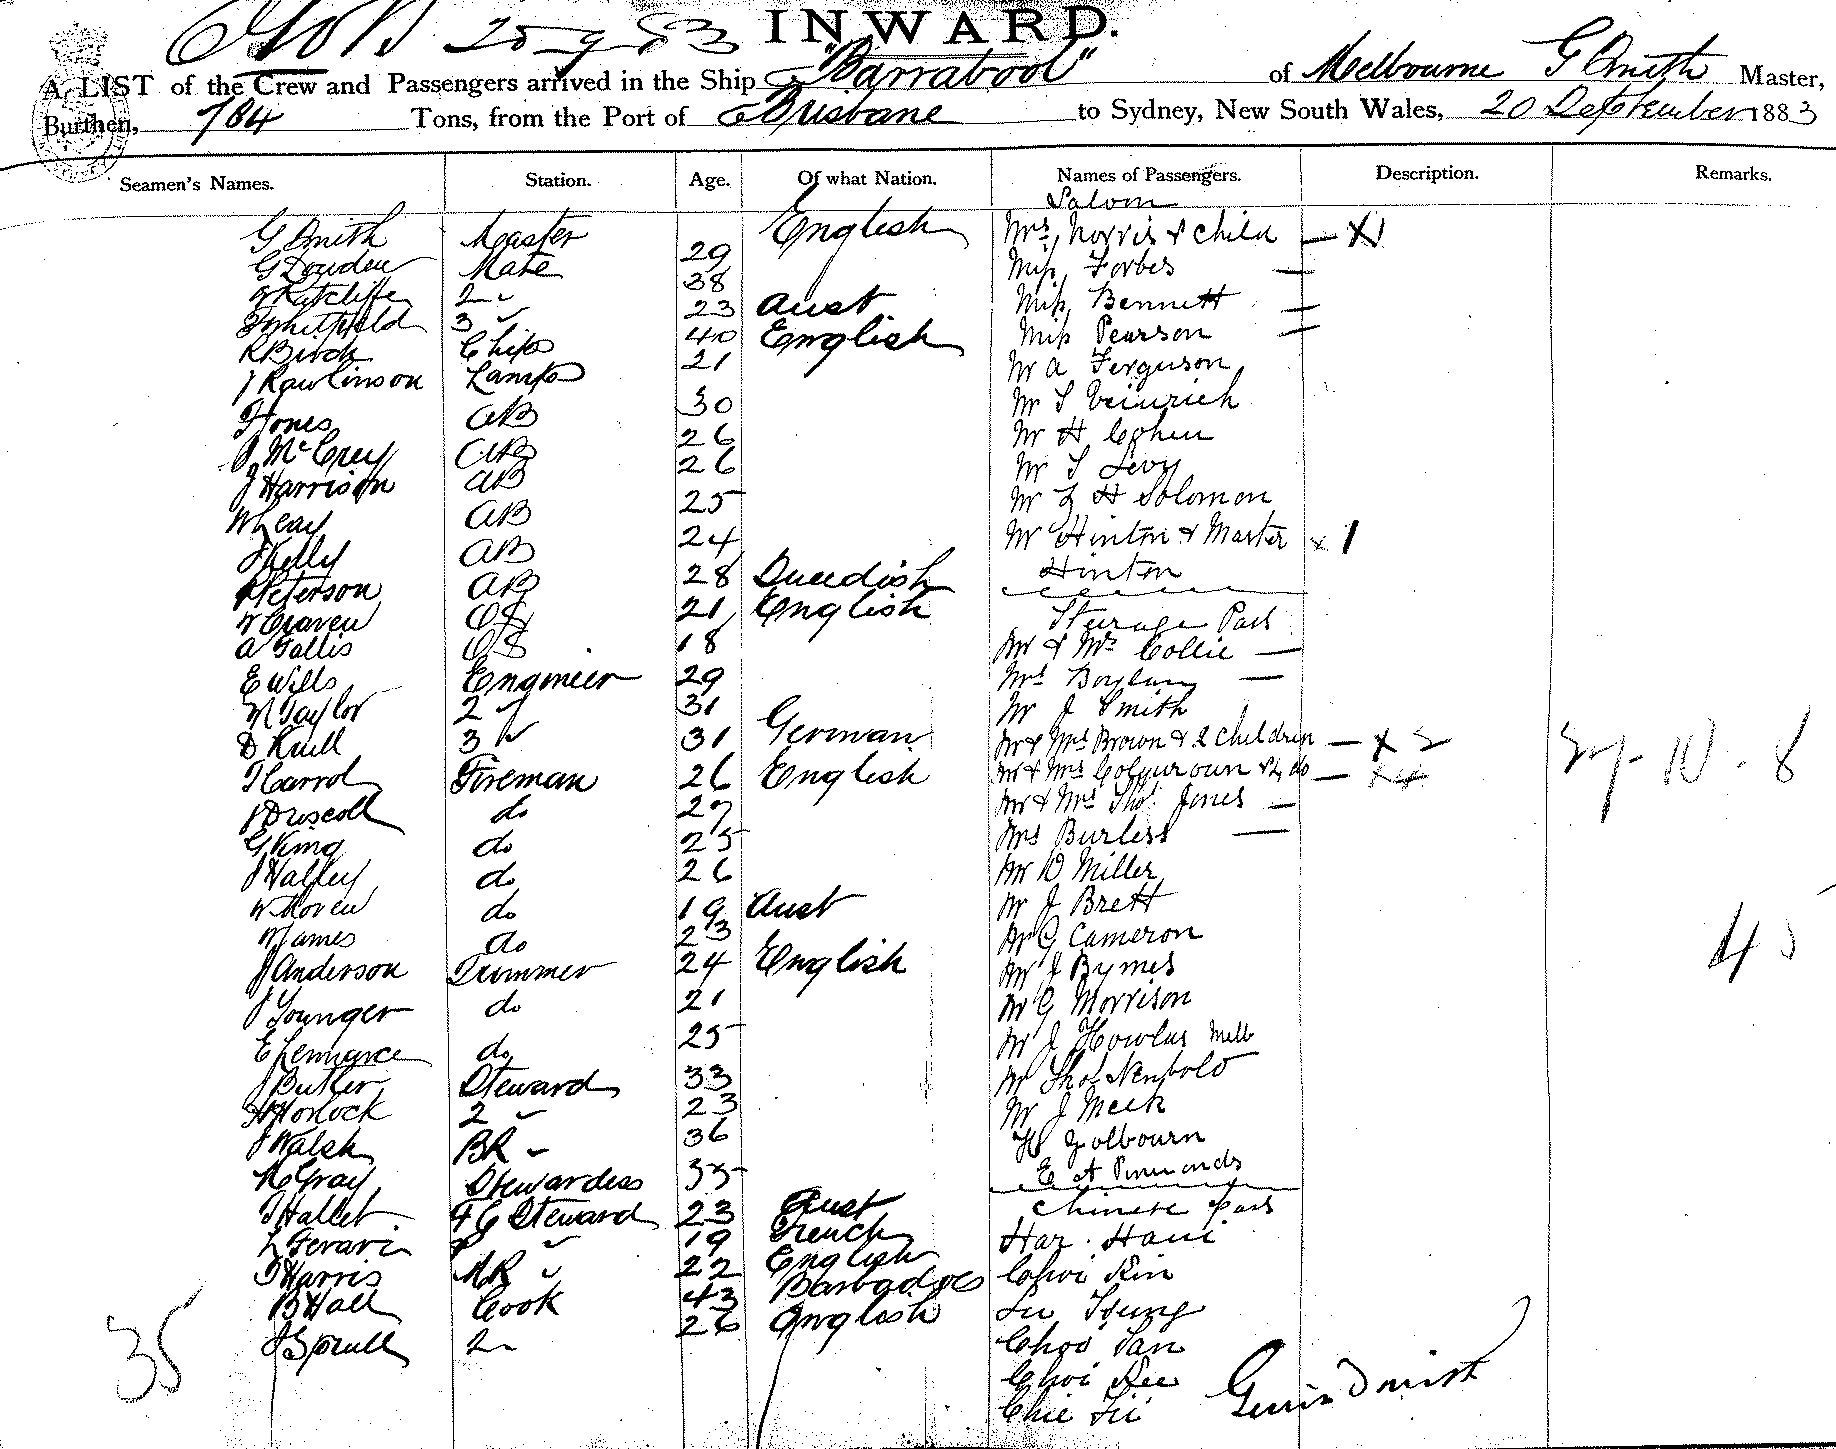 INWARD.
A LIST of the Crew and Passengers arrived in the Ship "Barrabool" of Melbourne G Smith Master,
Burthen, 784 Tons, from the Port of Brisbane to Sydney, New South Wales, 20 September 1883
Seamen's Names. Station. Age. Of what Nation. Names of Passengers. Description. Remarks.
Saloon
G Smith Master English Mrs Norris & Child — X1
G Dowden Mate 29 Miss Forbes —
Ratcliffe 2 " 38 Miss Bennett —
Whitfield 3 " 23 Aust Miss Pearson —
R Birch Chips 40 English Mr A Ferguson
J Rawlinson Lamps 21 Mr S
Jones AB 30 Mr H Cohen
J McCrey AB 26 Mr S Levy
J Harrison AB 26 Mr L H Solomon
W Leay AB 25 Mr Hinton & Master x 1
Kelly AB 24 Hinton
Peterson AB 28 Swedish Steerage Pass
W Craven OS 21 English Mr & Mrs Collie —
A Fallis OS 18 Mrs Boylan —
E Wills Engineer 29 Mr J Smith
W Taylor 2 " 31 Mr & Mrs Brown & 2 Children — x 2
D Krull 3 " 31 German Mr & Mrs Colquroun & 4 do — x4
T Carrol Fireman 26 English Mr & Mrs Thos. Jones —
J Driscoll do 27 Mrs Burless —
G King do 25 Mr D Miller
J Halley do 26 Mr J Brett
W do 19 Aust Mr G Cameron
W James do 23 Mr J Byrnes
J Anderson Trimmer 24 English Mr G Morrison
J Younger do 21 Mr J Howlas Melb
E do 25 Mr Thos. Newbold
J Butler Steward 33 Mr J Meek
H Horlock 2 " 23 H Golbourn
J Walsh BR " 36 E A
M Gray Stewardess 35 Chinese Pass
T Hallet F C Steward 23 Aust Har Hani
L Ferari " 19 French Choi Kin
T Harris MR " 22 English Su Tsung
B Hall Cook 43 Barbadoes Choo San
J Sprull 2 " 26 English Choi Kee
Chie Lii
35
10 . 8
45